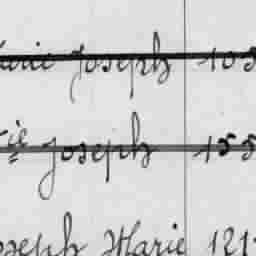 Marie Joseph 105
ie Joseph 155
oseph Marie 121